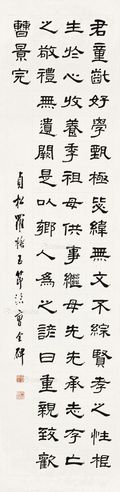 君童齔好學甄極毖緯無文不綜賢孝之性根
生於心收養季祖母供事繼母先意承志存亡
之敬禮無遺闕是以鄉人為之諺曰重親致歡
曹景完
貞松羅振玉節臨曹全碑